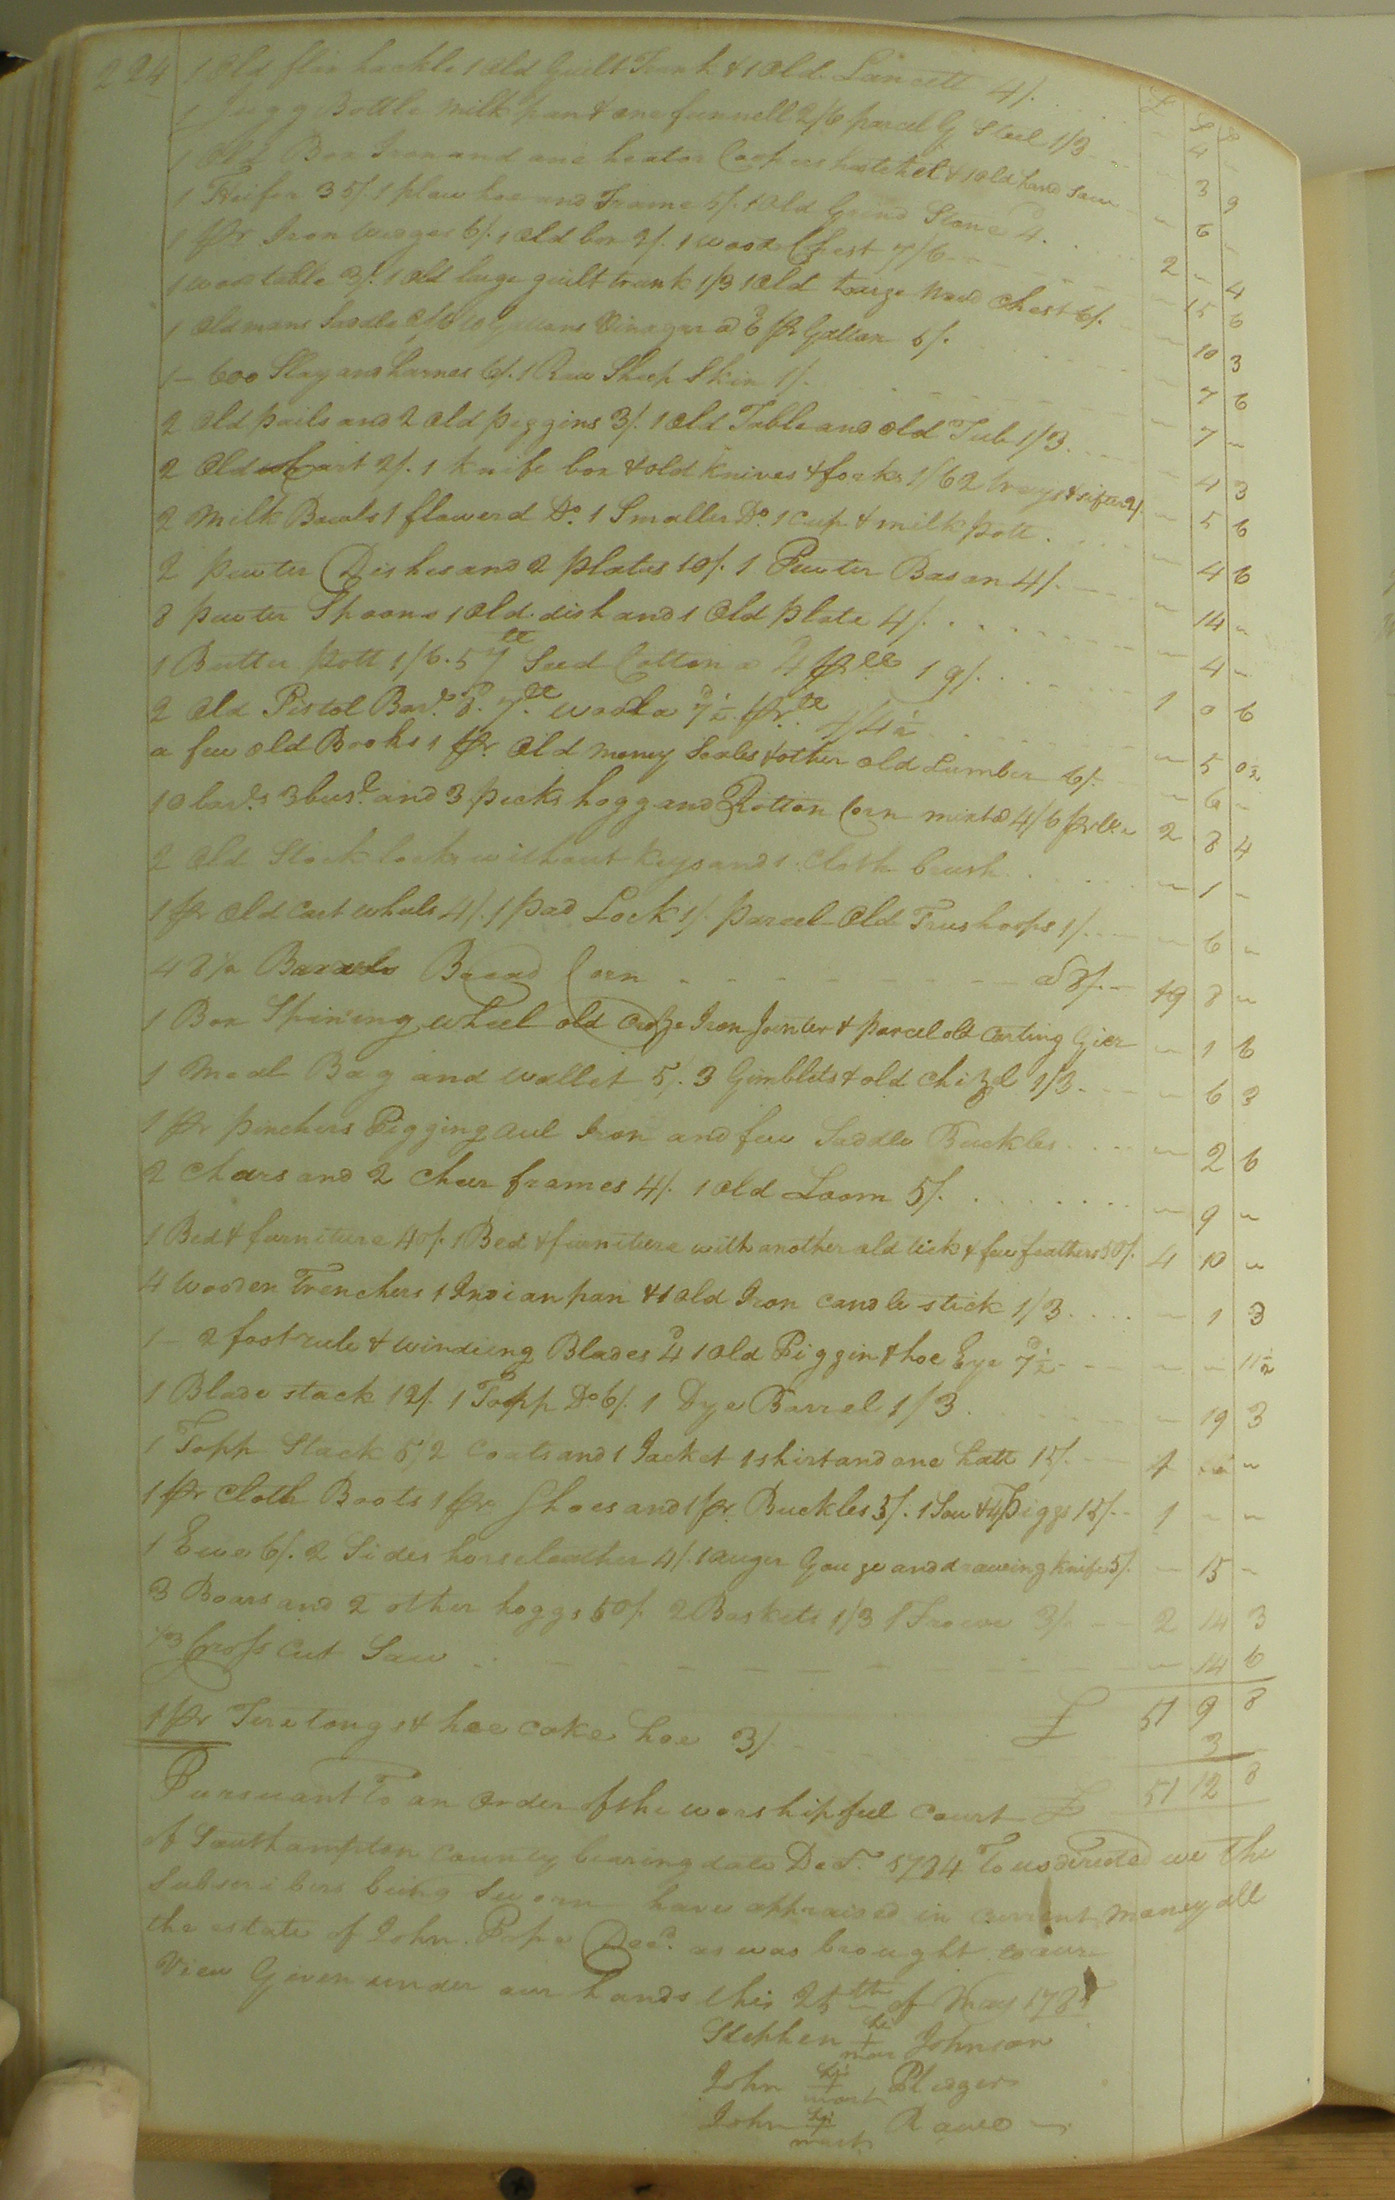 224
£ S d
1 Old flax hackle 1 Old Guilt Trunk & 1 Old Lancett 4/. - 4 -
1 Jugg Bottle milk pan & one funnell 2/6 parcel of Steel 1/3 - 3 9
1 Old Box Iron and one heator Coopers hatchet & 1 old hand Saw - 6 -
1 Heifer 35/. 1 plow hoe and Frame 5/. 1 Old Grind Stone 4d. 2 - 4
1 pr Iron wedges 6/. 1 Old box 2/. 1 wood Chest 7/6 - 15 6
1 wood table 3/. 1 Old large guilt trunk 1/3 1 Old Large wood Chest 6/. - 10 3
1 Old mans Saddle 2/6 10 Gallons Vinegar a 6d pr Gallon 5/. - 7 6
1 - 600 Slay and harness 6/. 1 Raw Sheep Skin 1/. - 7 -
2 Old pails and 2 Old piggins 3/. 1 Old Table and old Tub 1/3. - 4 3
2 Old Cart 2/. 1 knife box & old knives & forks 1/6 2 trays & sifter 2/. - 5 6
2 Milk Bowls 1 flowerd Do. 1 Smaller Do. 1 Cup & milk pott. - 4 6
2 pewter Dishes and 2 plates 10/. 1 Pewter Bason 4/. - 14 -
8 pewter Spoons 1 Old dish and 1 Old plate 4/. - 4 -
1 Butter pott 1/6. 57 lb Seed Cotton a 4d pr lb 19/. 1 0 6
2 Old Pistol Bar.s 8d. 7 lb wool a 7½d pr lb 4/4½ - 5 0½
a few old Books 1 pr. Old money Scales & other old Lumber 6/. - 6 -
10 bar.s 3 bus.s and 3 pecks hogg and Rotton Corn mixt a 4/6 2 8 4
2 Old Stock locks without keys and 1 Cloth brush - 1 -
1 pr Old cart wheels 4/. 1 pad Lock 1/. parcel Old Trushoops 1/. - 6 -
48½ Barrels Bread Corn a 8/. 19 8 -
1 Box Spining wheel old Croze Iron Jointer & parcel old Carting Gier - 1 6
1 Meal Bag and wallet 5/. 3 Gimblets & old Chizel 1/3 - 6 3
1 pr pinchers Pegging aul Iron and few Saddle Buckles - 2 6
2 Chears and 2 Chear frames 4/. 1 Old Loom 5/. - 9 -
1 Bed & furniture 40/. 1 Bed & furniture with another old tick & few feathers 50/. 4 10 -
4 Wooden Trenchers 1 Indian pan & 1 old Iron candle stick 1/3 - 1 3
1 - 2 foot rule & winding Blades 4d 1 Old Piggin & hoe Eye 7½d - - 11½
1 Blade stack 12/. 1 Topp Do 6/. 1 Dye Barrel 1/3 - 19 3
1 Topp Stack 5/. 2 Coats and 1 Jacket 1 shirt and one hatt 15/. 1 - -
1 pr Cloth Boots 1 pr Shoes and 1 pr. Buckles 5/. 1 Sow & 4 Piggs 15/. 1 - -
1 Ewe 6/. 2 Sides horse leather 4/. 1 auger Gouge and drawing knife 5/. - 15 -
3 Boars and 2 other hoggs 50/. 2 Baskets 1/3 1 Frowe 3/. 2 14 3
Cross Cut Saw - 14 6
£ 51 9 8
1 pr Fire tongs & hoe cake hoe 3/. 3
£ 51 12 8
Pursuant To an Order of the worshipful Court
of Southampton County bearing date Dec.r 1784 To us directed we the
Subscribers being Sworn have appraised in Current money all
the estate of John Pope Dec.d as was brought to our
View Given under our hands this 25th of May 178
Stephen his + mark Johnson
John his + mark Pledger
John his + mark Rawe